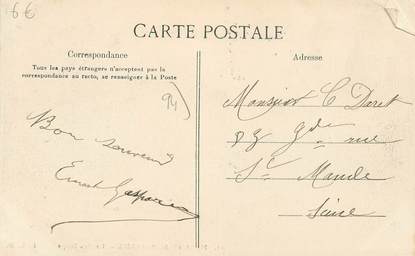 6€
CARTE POSTALE
Correspondance
Tous les pays étrangers n'acceptent pas la
correspondance au recto, se renseigner à la Poste
Adresse
94
Bon souvenir
Ernest
Monsieur C Daret
83 Gde rue
St Mande
Seine